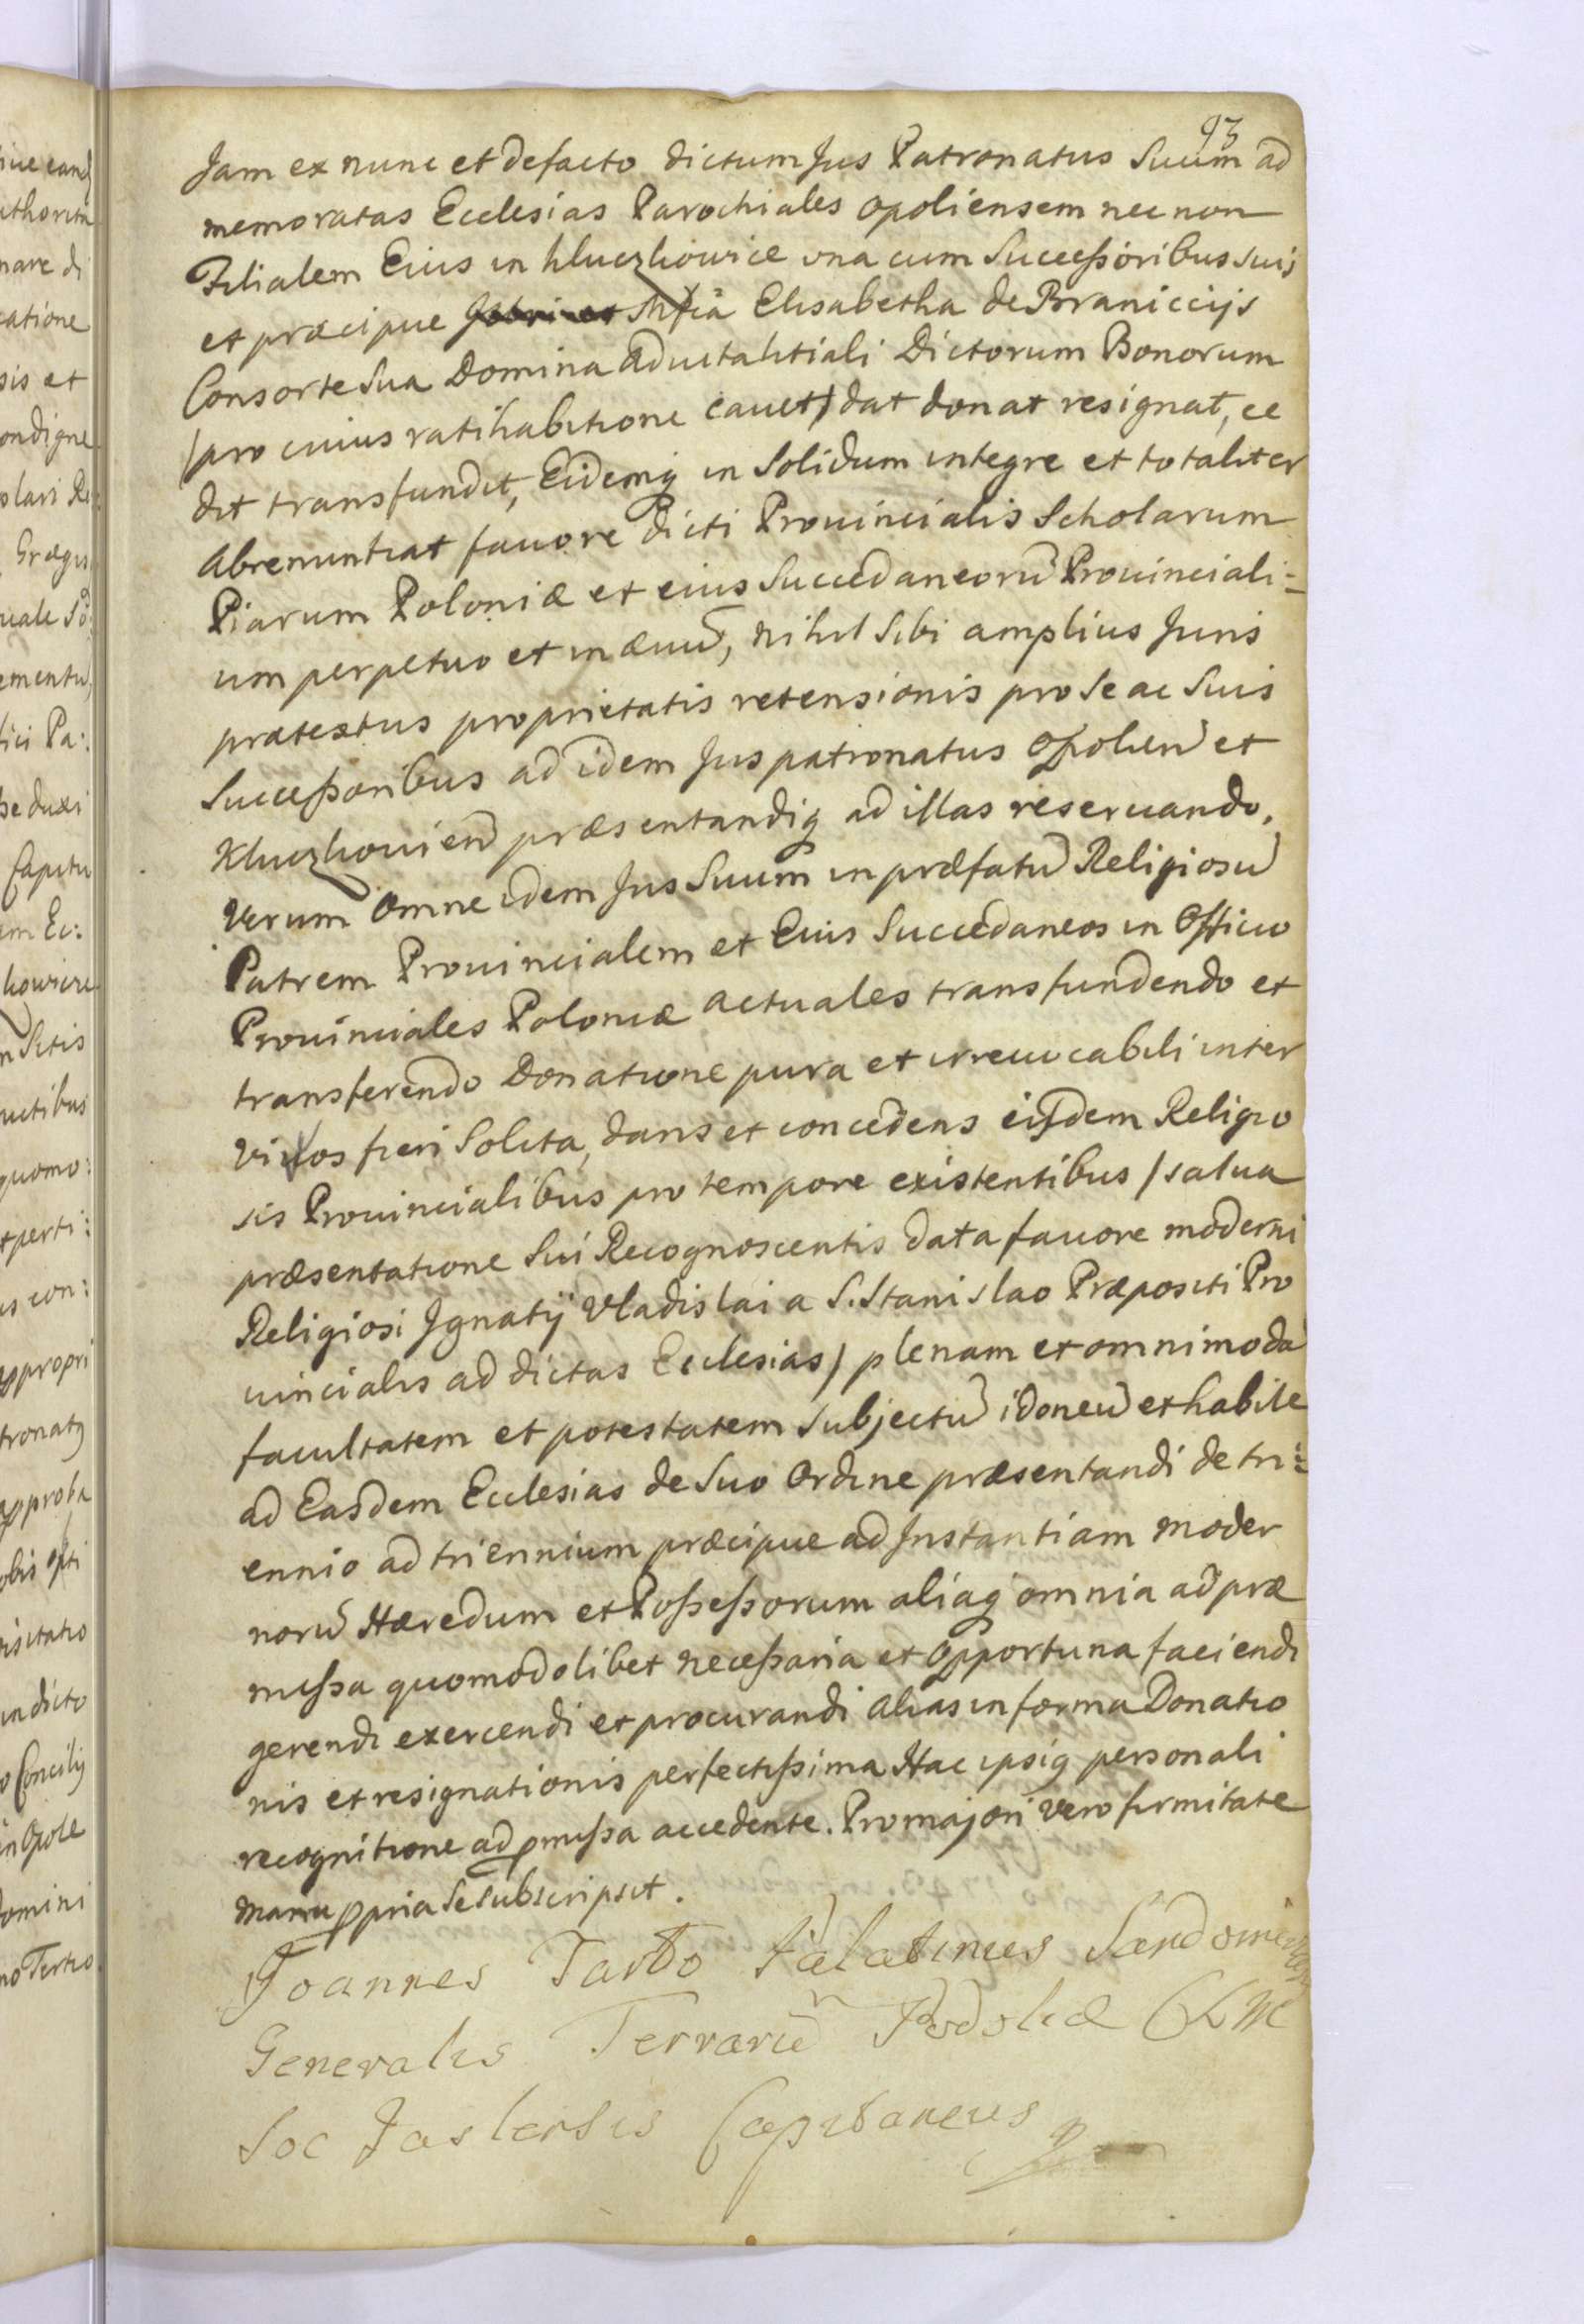 93
Jam ex nunc et de facto dictum Jus Patronatus Suum ad
memoratas Ecclesias Parochiales Opoliensem nec non
Filialem Eius in Kluczkowice una cum Successoribus suis
et præcipue Elisabetha de Braniccijs
Consorte Sua Domina Aduitalitiali Dictorum Bonorum
/pro cuius ratihabitione cauet/ dat donat resignat, ce
dit transfundit, Eidemq in Solidum integre et totaliter
Abrenuntiat fauore dicti Prouincialis Scholarum
Piarum Poloniæ et eius Succedaneorū Prouinciali=
um perpetuo et in æuū, nihil Sibi amplius Juris
prætextus proprietatis retensionis pro Se ac Suis
Successoribus ad idem Jus patronatus Opolien et
Kluczkovien præsentandiq ad illas reseruando,
Verum Omne idem Jus Suum in præfatū Religiosū
Patrem Prouincialem et Eius Succedaneos in Officio
Prouinciales Poloniæ actuales transfundendo et
transferendo Donatione pura et irreuocabili inter
vivos fieri Solita, dans et concedens eisdem Religio
sis Prouincialibus pro tempore existentibus /salua
præsentatione Sui Recognoscentis data fauore moderni
Religiosi Jgnatij Vladislai a S. Stanislao Præpositi Pro
uincialis ad dictas Ecclesias/ plenam et omnimodā
facultatem et potestatem Subjectū idoneū et habile
ad Easdem Ecclesias de Suo Ordine præsentandi de tri=
ennio ad triennium præcipue ad Jnstantiam moder
norū Hæredum et Possessorum aliaq omnia ad præ
missa quomodolibet necessaria et opportuna faciendi
gerendi exercendi et procurandi alias in forma Donatio
nis et resignationis perfectissima Hac ipsiq personali
recognitione ad pmissa accedente. Pro majori vero firmitate
manu ppria Se Subscripsit.
Joannes Tarło Palatinus Sandomirien
Generalis Terrarū Podoliæ
Soc Jaslensis Capitaneus